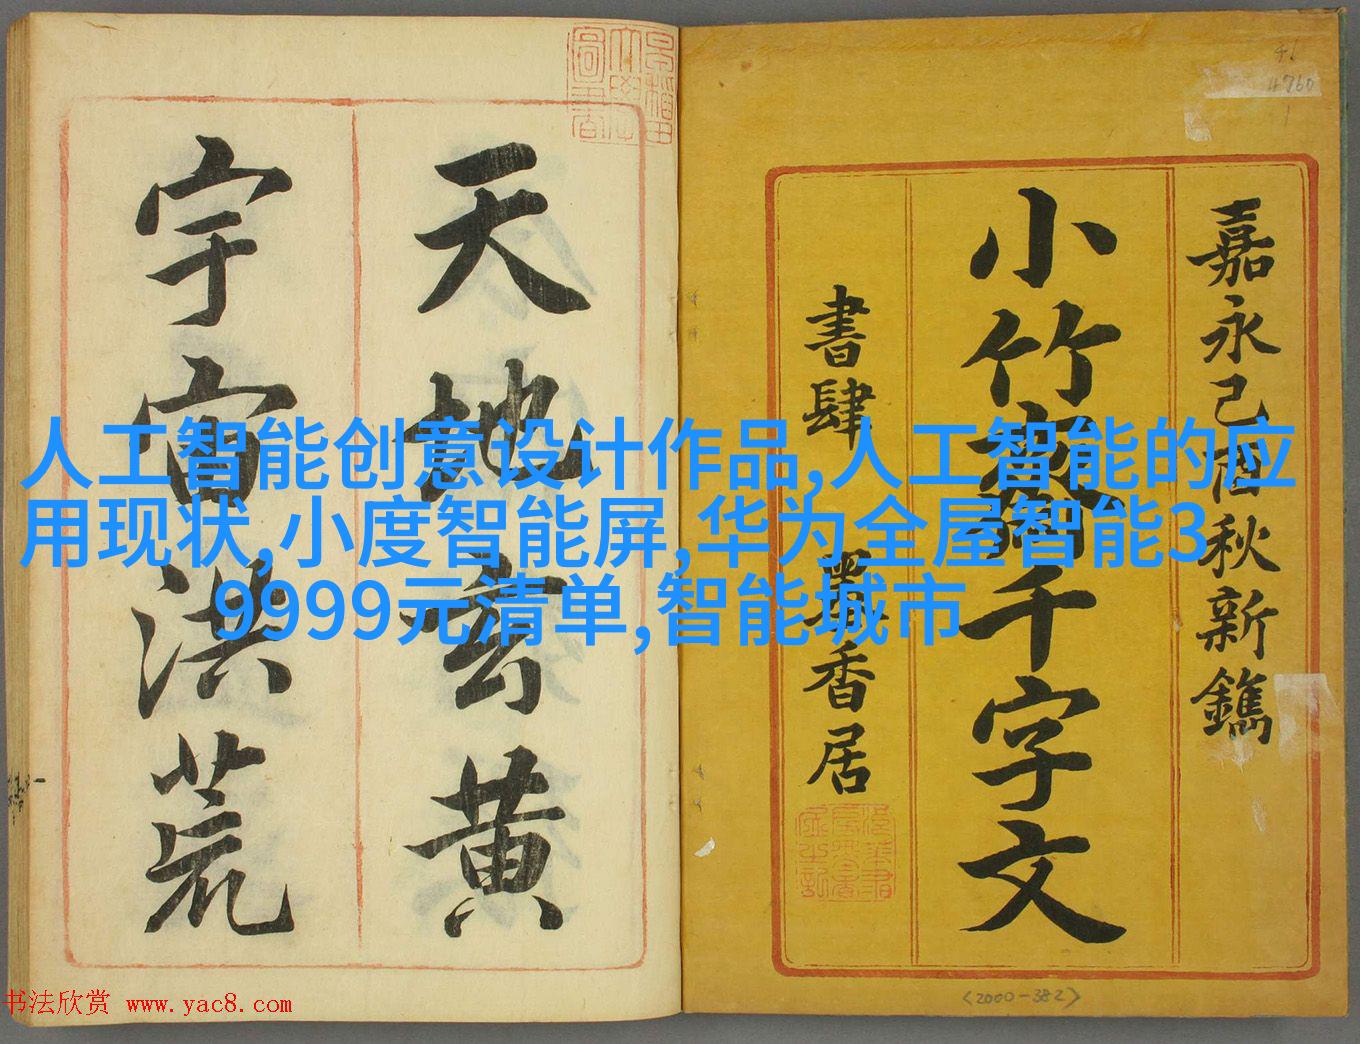 嘉永己酉秋新鐫
小竹齋千字文
書肆 香居
天地玄黄
宇宙洪荒
人工智能创意设计作品,人工智能的应
用现状,小度智能屏,华为全屋智能3
9999元清单,智能城市
46
4760
<2000-382>
书法欣赏 www.yac8.com